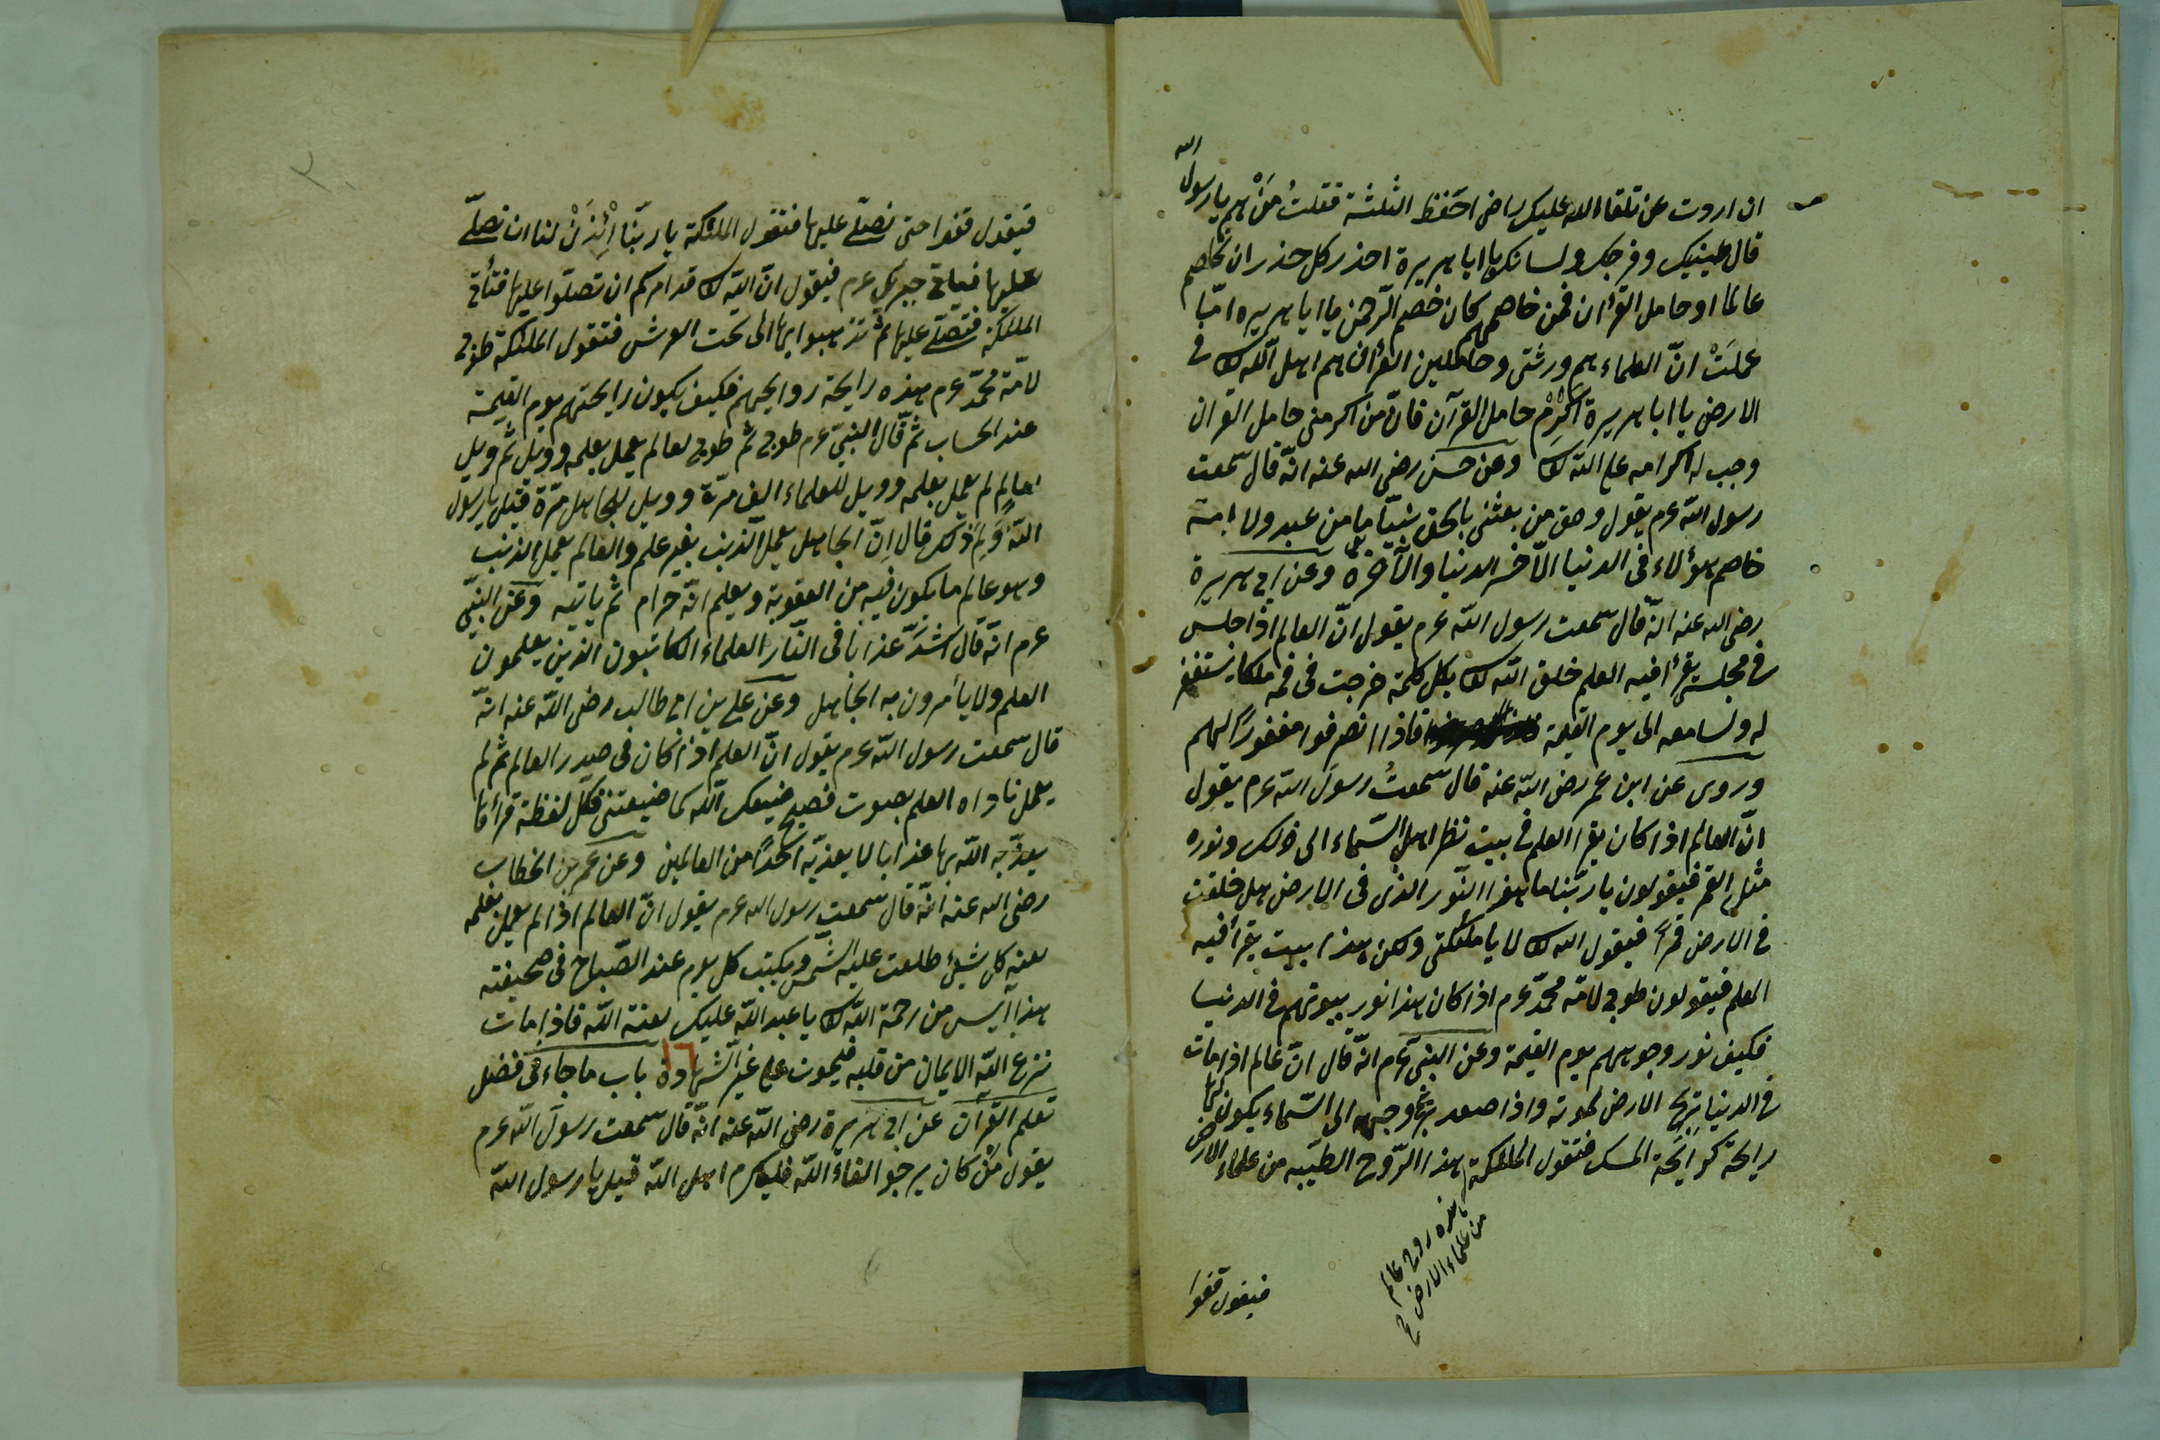 ان اردت عن تلقاء الله عليك راض احفظ الثلثة فقلتُ مَنْ هم يا رسول الله
قال عينيك وفرجك ولسانك يا ابا هريرة احذر كل حذر ان تخاصم
عالما او حامل القرأن فمن خاصمهم كان خصم الرّحمن يا ابا هريره امّا
عملَتْ انّ العلماء هم ورثتى وحاملين القرأن هم اهل الله في
الارض يا ابا هريرة اَكْرِمْ حامل القرآن فانّ من اكرمنى حامل القران
وجب له اكرامه على الله وعن حسن رضى الله عنه انّه قال سمعت
رسول الله عم يقول وحق من بعثنى بالحق نبيّا ما من عبد ولا امة
خاصم هؤلاء فى الدنيا الّا خسر الدنيا والآخره وعن ابى هريرة
رضى الله عنه انّه قال سمعت رسول الله عم يقول انّ العالم اذا جلس
في مجلس يقرأ فيه العلم خلق الله بكل كلمة خرجت فى فمه ملكا يستغفر
له ولسامعه الى يوم القيمة فاذا انصرفوا مغفورًا لهم
وروى عن ابن عمر رضى الله عنه قال سمعتُ رسولَ الله عم يقول
انّ العالم اذا كان يقرأ العلم في بيت نظر اهل السّماء الى ذلك ونوره
مثل القمر فيقولون يا ربّنا ما هذا النّور الذى فى الارض هل خلقت
في الارض قمراً فيقول الله لا يا ملئكتى ولكن هذا بيت يقرأ فيه
العلم فيقولون طوبى لامّة محمّد عم اذا كان هذا نور بيوتهم في الدنيا
فكيف نور وجوههم يوم القيمة وعن النبىّ عم انّه قال انّ عالم اذا مات
في الدنيا يريح الارض لموته واذا صعد بروحه الى السّماء يكون لها
رايحة كرايحة المسك فتقول الملئكة هذا الرّوح الطيّبه من علماء الارض
هذه روح عالم
من علماء الارض
فيقول قفوا
فيقول قفوا حتى نصلّى عليها فتقول الملئكة يا ربّنا اِئْذِنْ لنا ان نصلّى
عليها فيأتى جبريل عم فيقول انّ الله قد امركم ان تصلّوا عليها فتأتى
الملئكة فتصلّى عليها ثم تذهبوا بها الى تحت العرش فتقول الملئكة طوبى
لامّة محمّد عم هذه رايحة روايحهم فكيف يكون رايحتهم يوم القيمة
عند الحساب ثم قال النبىّ عم طوبى ثم طوبى لعالم يعمل بعلمه وويل ثم ويل
لعالم لم يعمل بعلمه وويل للعلماء الف مرّة وويل للجاهل مرّة قيل يا رسول
الله وَلِمَ ذلك قال اِنّ الجاهل يعمل الذنب بغير علم والعالم يعمل الذنب
وهو عالم ما يكون فيه من العقوبة ويعلم انّه حرام ثم ياتيه وعن النبىّ
عم انّه قال اشدّ عذابا فى النّار العلماء الكاتبون الذين يعلمون
العلم ولا يأمرون به الجاهل وعن على بن ابى طالب رضى الله عنه انّه
قال سمعت رسول الله عم يقول انّ العلم اذا كان فى صدر العالم ثم لم
يعمل ناداه العلم بصوت فصيح ضيعك الله كما ضيعتنى فكل لفظة قرأها
يعذّبه الله بها عذابا لا يعذبه احدًا من العالمين وعن عمر بن الخطاب
رضى الله عنه انّه قال سمعت رسول الله عم يقول انّ العالم اذا لم يعمل بعلمه
لعنه كل شيئ طلعت عليه الشّمس ويكتب كل يوم عند الصّباح فى صحيفته
هذا آيس من رحمة الله يا عبد الله عليك لعنة الله فاذا مات
نزع الله الايمان من قلبه فيموت على غير الشّهادة ١٦ باب ما جاء فى فضل
تعلم القرآن عن ابى هريرة رضى الله عنه انّه قال سمعت رسول الله عم
يقول مَنْ كان يرجو القاء الله فليكرم اهل الله قيل يا رسول الله